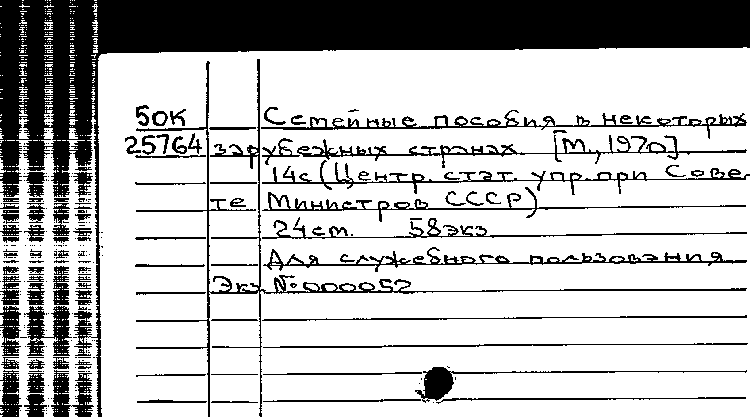 50К Семейные пособия в некоторых
25764 зарубежных странах. [М., 1970].
14с (Центр. стат. упр. при Сове-
те Министров СССР)
24см. 58экз
Для служебного пользования
Экз. №000052